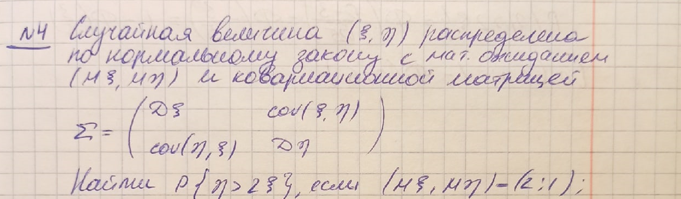 №4 Случайная величина (ξ, η) распределена
по нормальному закону с мат. ожиданием
(Мξ, Мη) и ковариационной матрицей
Σ = ( Dξ cov(ξ, η)
cov(η, ξ) Dη )
Найти P{η > 2ξ}, если (Мξ, Мη) = (2; 1);